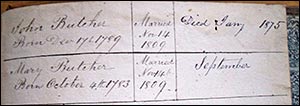 John Butcher Married Died Jany 1875
Born Dec 17th 1789 Nov 14
1809
Mary Butcher Married September
Born October 4th 1783 Nov 14th
1809